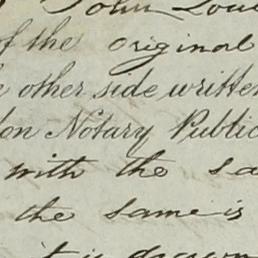 John Lou
of the original
other side written
on Notary Public
with the sa
the same is
it is drawn